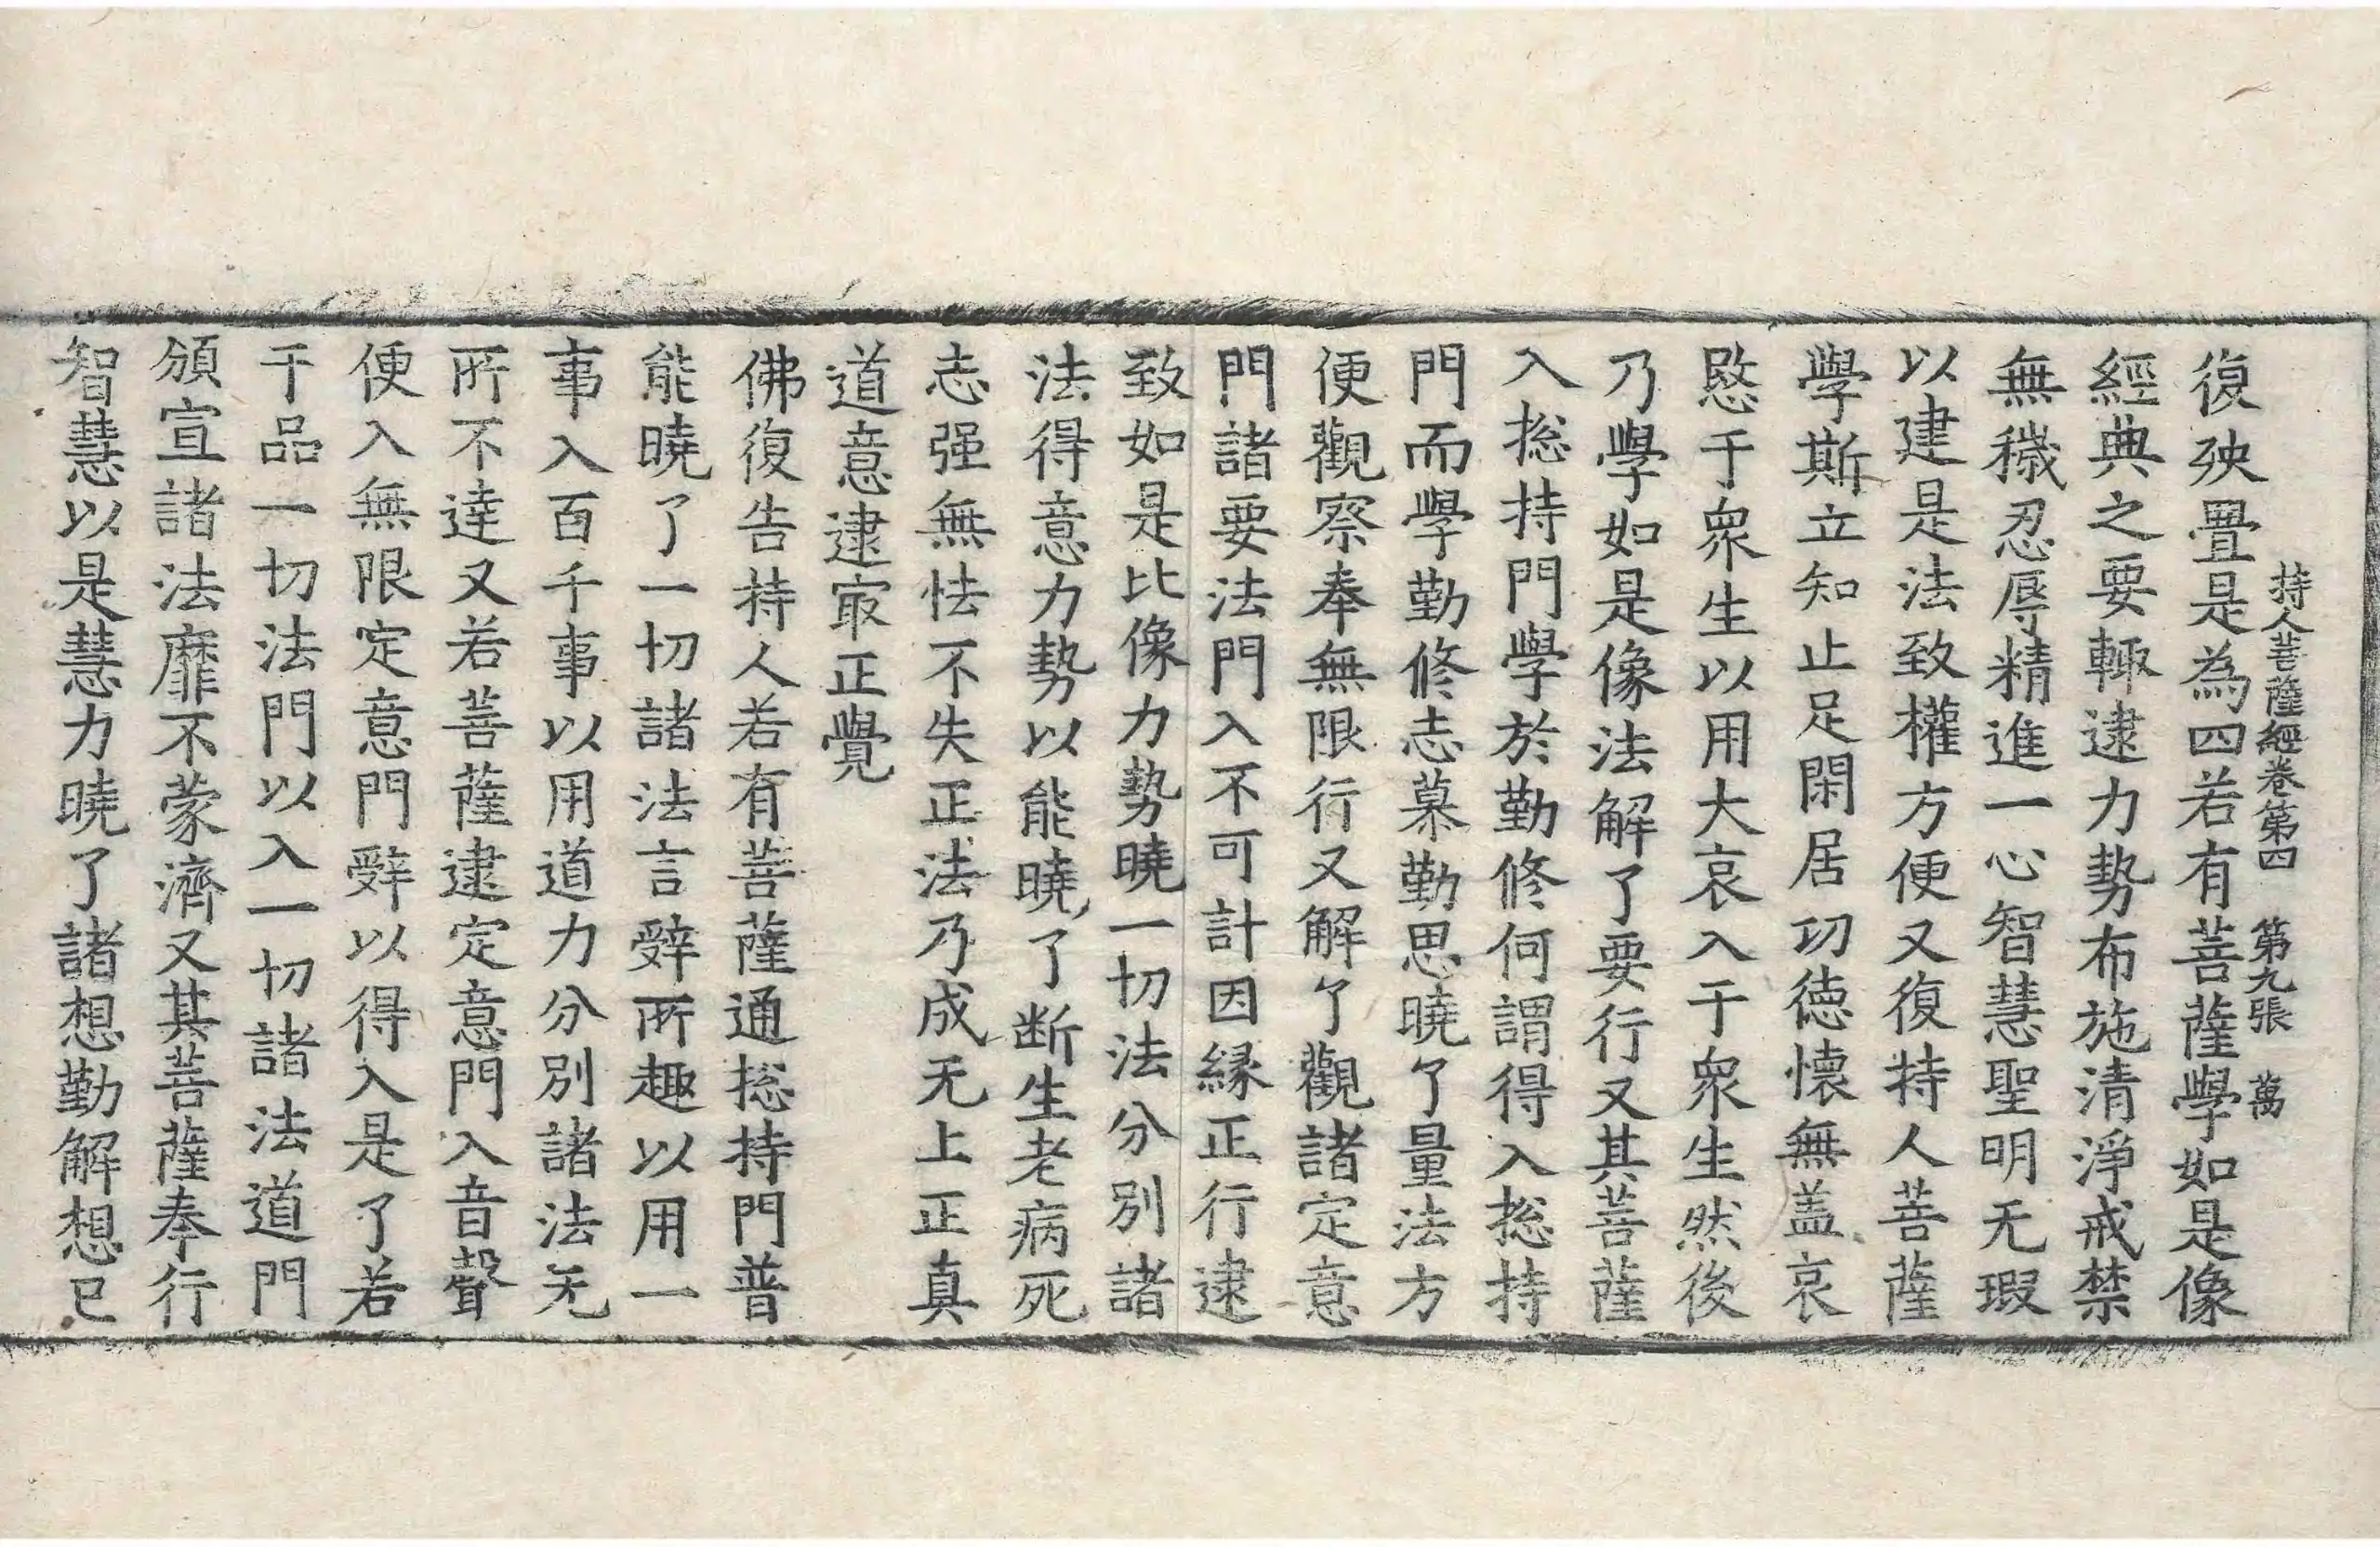 持人菩薩經卷第四 第九張 萬
復殃疊是為四若有菩薩學如是像
經典之要輙逮力勢布施清淨戒禁
無穢忍辱精進一心智慧聖明无瑕
以建是法致權方便又復持人菩薩
學斯立知止足閑居切德懷無盖哀
愍于衆生以用大哀入于衆生然後
乃學如是像法解了要行又其菩薩
入捴持門學於勤修何謂得入捴持
門而學勤修志慕勤思曉了量法方
便觀察奉無限行又解了觀諸定意
門諸要法門入不可計因縁正行逮
致如是比像力勢曉一切法分別諸
法得意力勢以能曉了断生老病死
志强無怯不失正法乃成无上正真
道意逮冣正覺
佛復告持人若有菩薩通捴持門普
能曉了一切諸法言辝所趣以用一
事入百千事以用道力分別諸法无
所不達又若菩薩逮定意門入音聲
便入無限定意門辝以得入是了若
干品一切法門以入一切諸法道門
頒宣諸法靡不蒙濟又其菩薩奉行
智慧以是慧力曉了諸想勤解想已